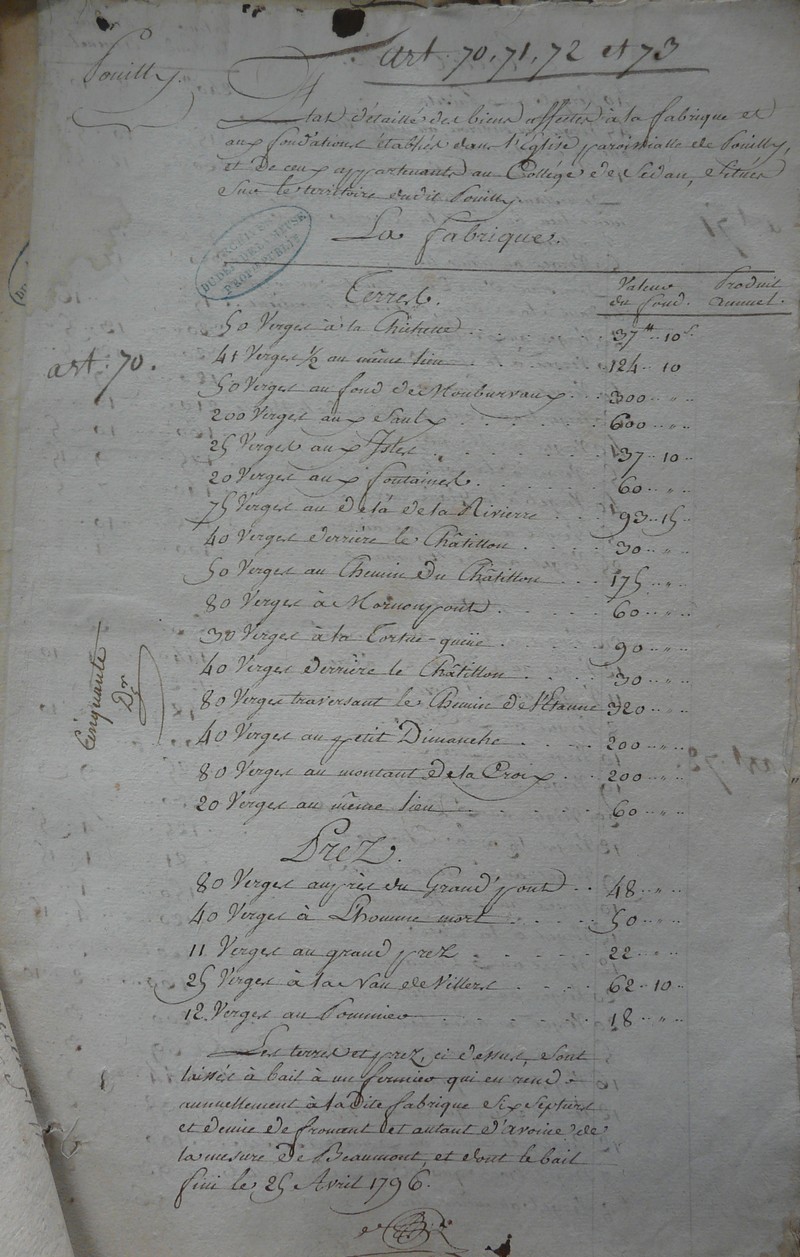 art. 70, 71, 72 et 73
Pouilly.
Etat détaillé des biens affectés à la fabrique et
aux fondations établies dans l'Eglise paroissialle de Pouilly,
et De ceux appartenants au Collége de Sedan, situés
sur le territoire dudit Pouilly.
La fabrique.
DU DEP. DE LA MEUSE
Terres. Valeur du fond. Produit annuel.
50 Verges à la 37# .. 10s
art: 70.
41 Verges ½ au même lieu 124 .. 10
50 Verges au fond de 300 .. " ..
200 Verges aux Saulx 600 .. " ..
25 Verges aux Isles 37 .. 10 ..
20 Verges aux fontaines. 60 .. " ..
75 Verges au de là de la Rivierre 93 .. 15 ..
40 Verges derrière le Châtillon 30 .. " ..
50 Verges au Chemin Du Châtillon 175 .. " ..
80 Verges à 60 .. " ..
30 Verges à la Tortue-queüe 90 .. " ..
40 Verges derrière le Châtillon 30 .. " ..
80 Verges traversant le Chemin de 320 .. " ..
40 Verges au petit Dimanche 200 .. " ..
80 Verges au montant De la Croix 200 .. " ..
20 Verges au même lieu 60 .. " ..
Cinquante
Dr
Prez.
80 Verges auprès du Grand pont 48 .. " ..
40 Verges à L'homme mort 50 .. " ..
11 Verges au grand prez 22 .. " ..
25 Verges à la Vau de Villers 62 .. 10 ..
12 Verges au Pommier 18 .. " ..
Les terres et prez, ci dessus, sont
laissés à bail à un fermier qui en rend
annuellement à la dite fabrique six septiers
et demie de froment et autant d'avoine de
la mesure De Beaumont, et dont le bail
fini le 25 Avril 1796.